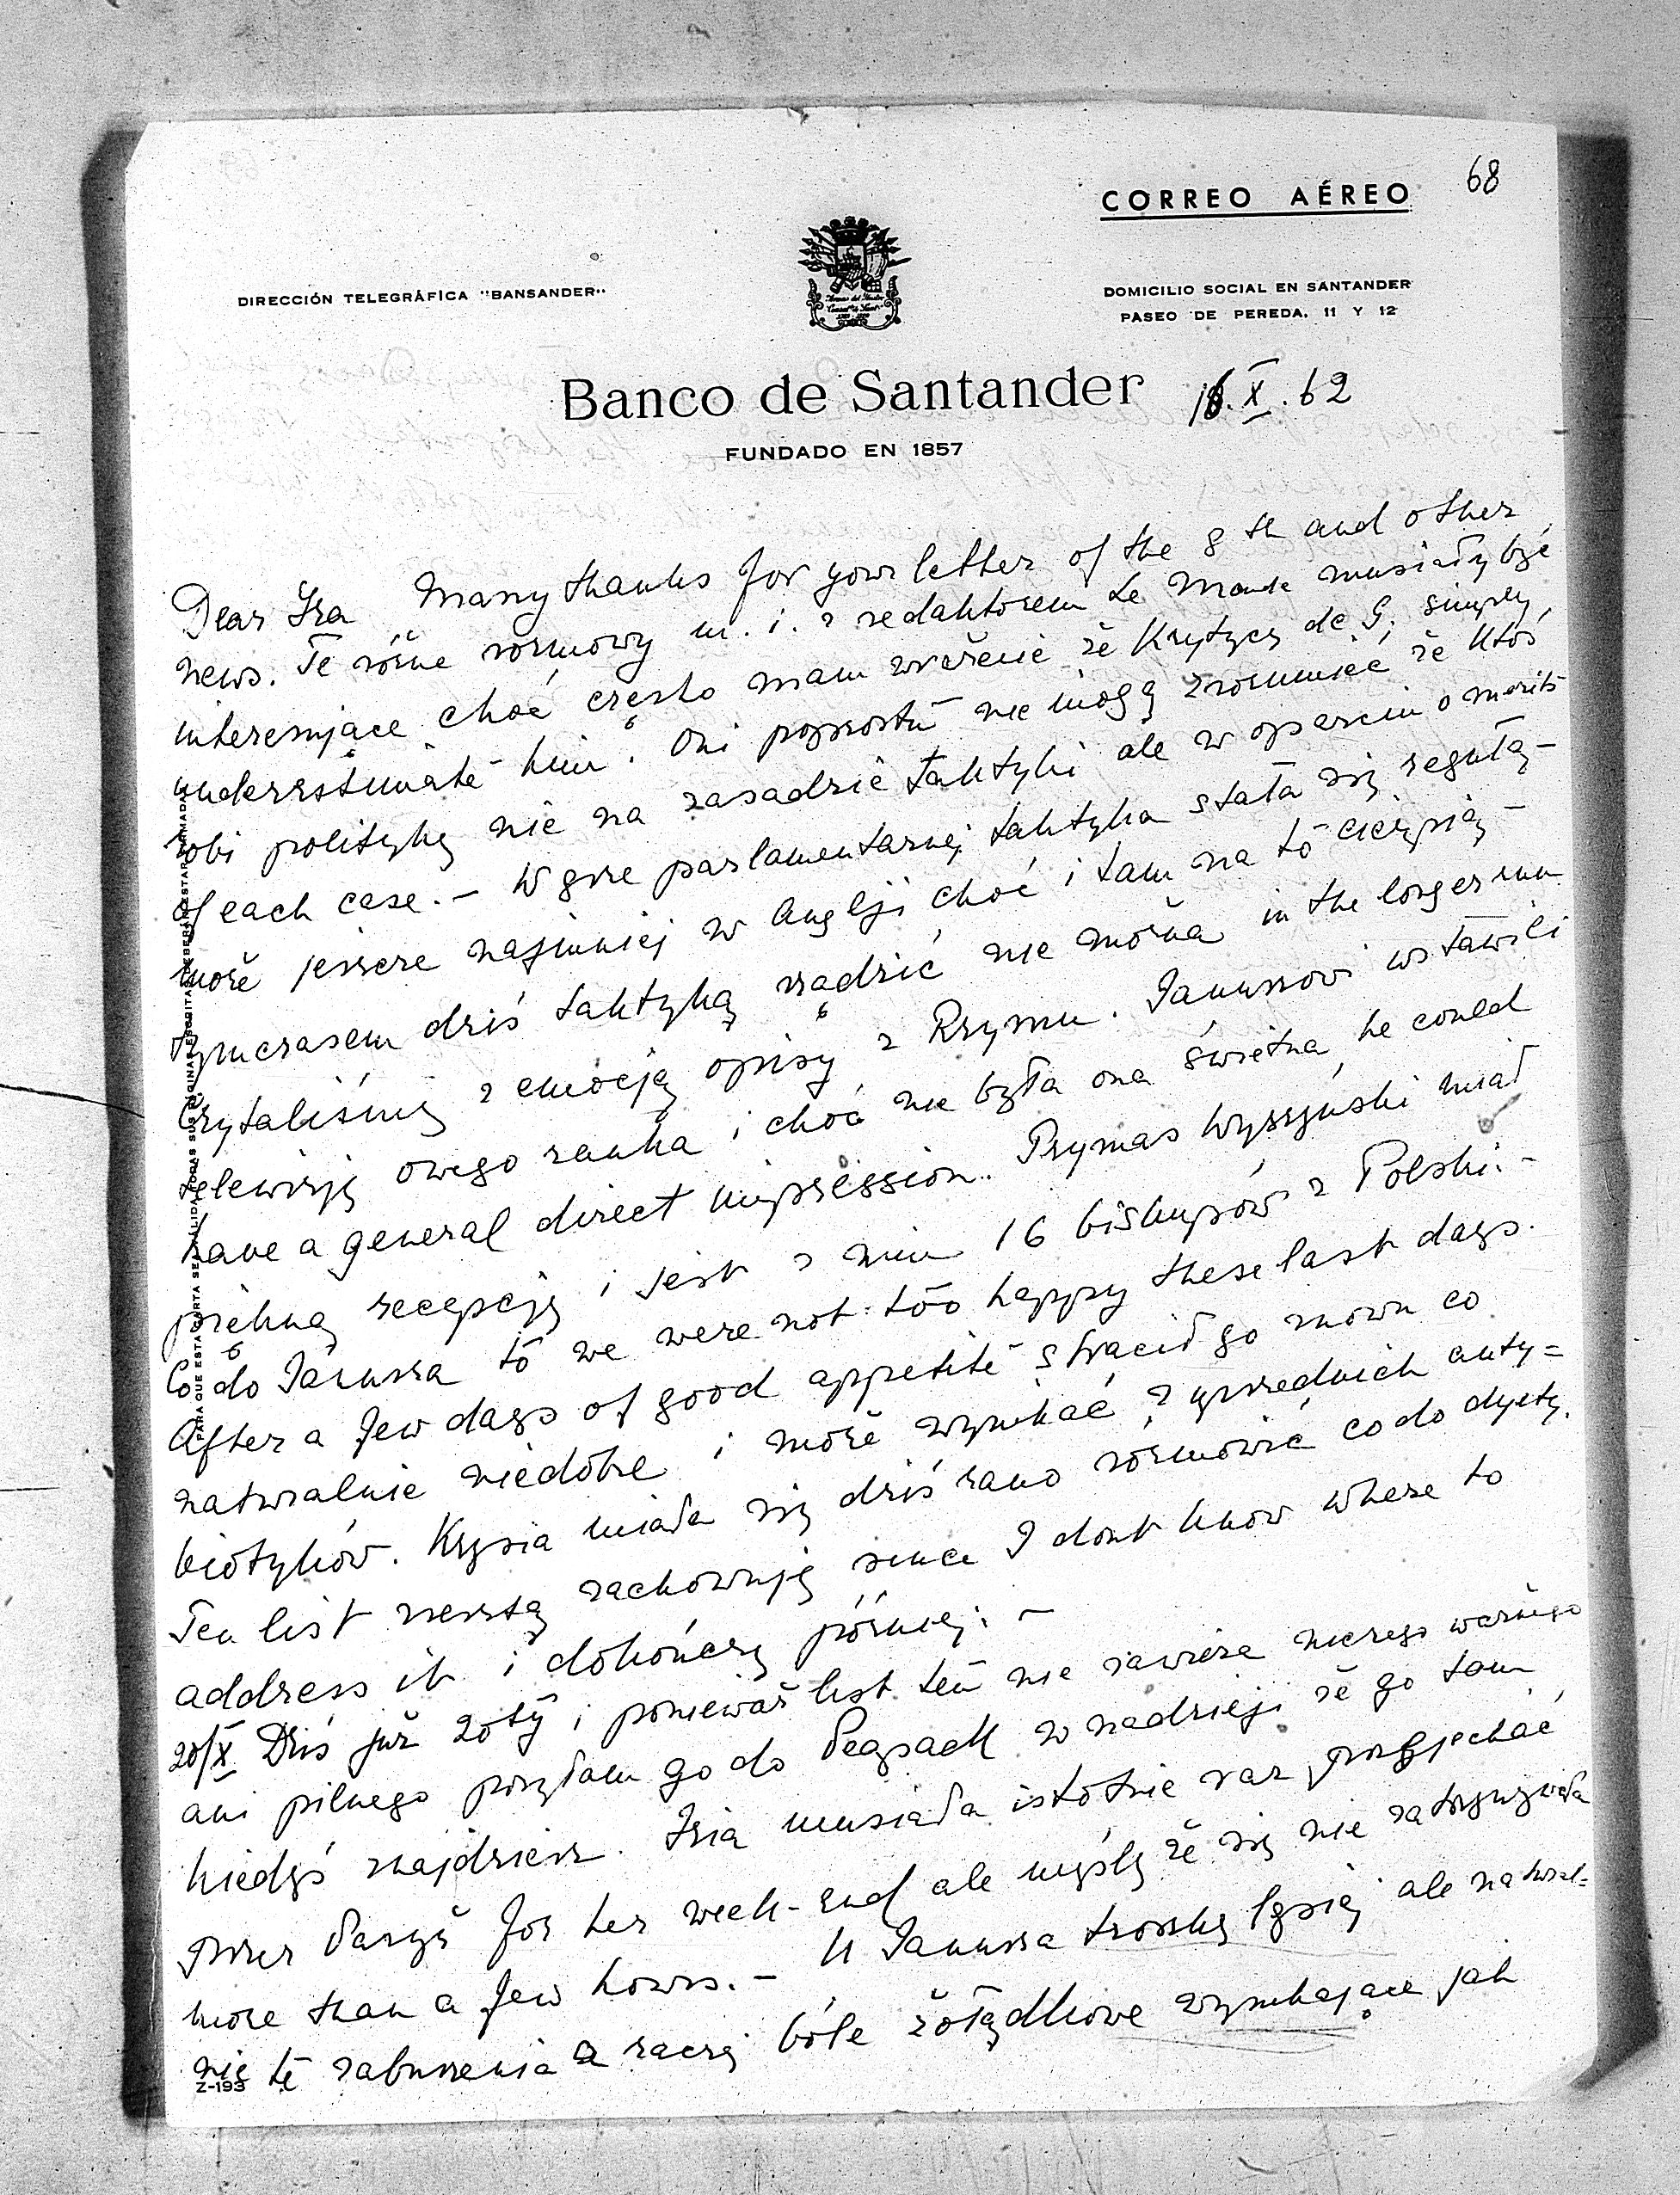 68
CORREO AÉREO
DIRECCIÓN TELEGRÁFICA "BANSANDER"
DOMICILIO SOCIAL EN SANTANDER
PASEO DE PEREDA, 11 Y 12
Banco de Santander
16.X.62
FUNDADO EN 1857
Dear Iza Many thanks for your letter of the 8th and other
news. Te różne rozmowy m. i. z redaktorem Le Monde musiały być
interesujące choć często mam wrażenie że Krytycy de G. simply
underestimate him. Oni poprostu nie mogą zrozumieć że ktoś
robi politykę nie na zasadzie taktyki ale w oparciu o merits
of each case. – W grze parlamentarnej taktyka stała się regułą –
może jeszcze najmniej w Anglji choć i tam na to cierpią –
Tymczasem dziś taktyką rządzić nie można in the longer run
Czytaliśmy z emocją opisy z Rzymu. Januszowi wstawili
telewizję owego ranka i choć nie była ona świetna, he could
have a general direct impression. Prymas Wyszyński miał
piękną recepcję i jest z nim 16 biskupów z Polski. –
Co do Janusza to we were not too happy these last days.
After a few days of good appetite stracił go znowu co
naturalnie niedobre i może wynikać z uprzednich anty=
biotyków. Krysia miała się dziś rano rozmówić co do dyety.
Ten list zresztą zachowuję since I dont know where to
address it i dokończę później. –
20/X Dziś już 20ty i ponieważ list ten nie zawiera niczego ważnego
ani pilnego posyłam go do w nadzieji że go tam
kiedyś znajdziesz. Izia musiała istotnie raz przejechać
przez Paryż for her week-end ale myślę że się nie zatrzymywała
more than a few hours. – U Janusza troszkę lepiej ale natural=
nie te zaburzenia a raczej bóle żołądkowe wynikające jak
PARA QUE ESTA CARTA SEA VALIDA TODAS SUS PAGINAS ESCRITAS DEBERAN ESTAR FIRMADAS
Z-193